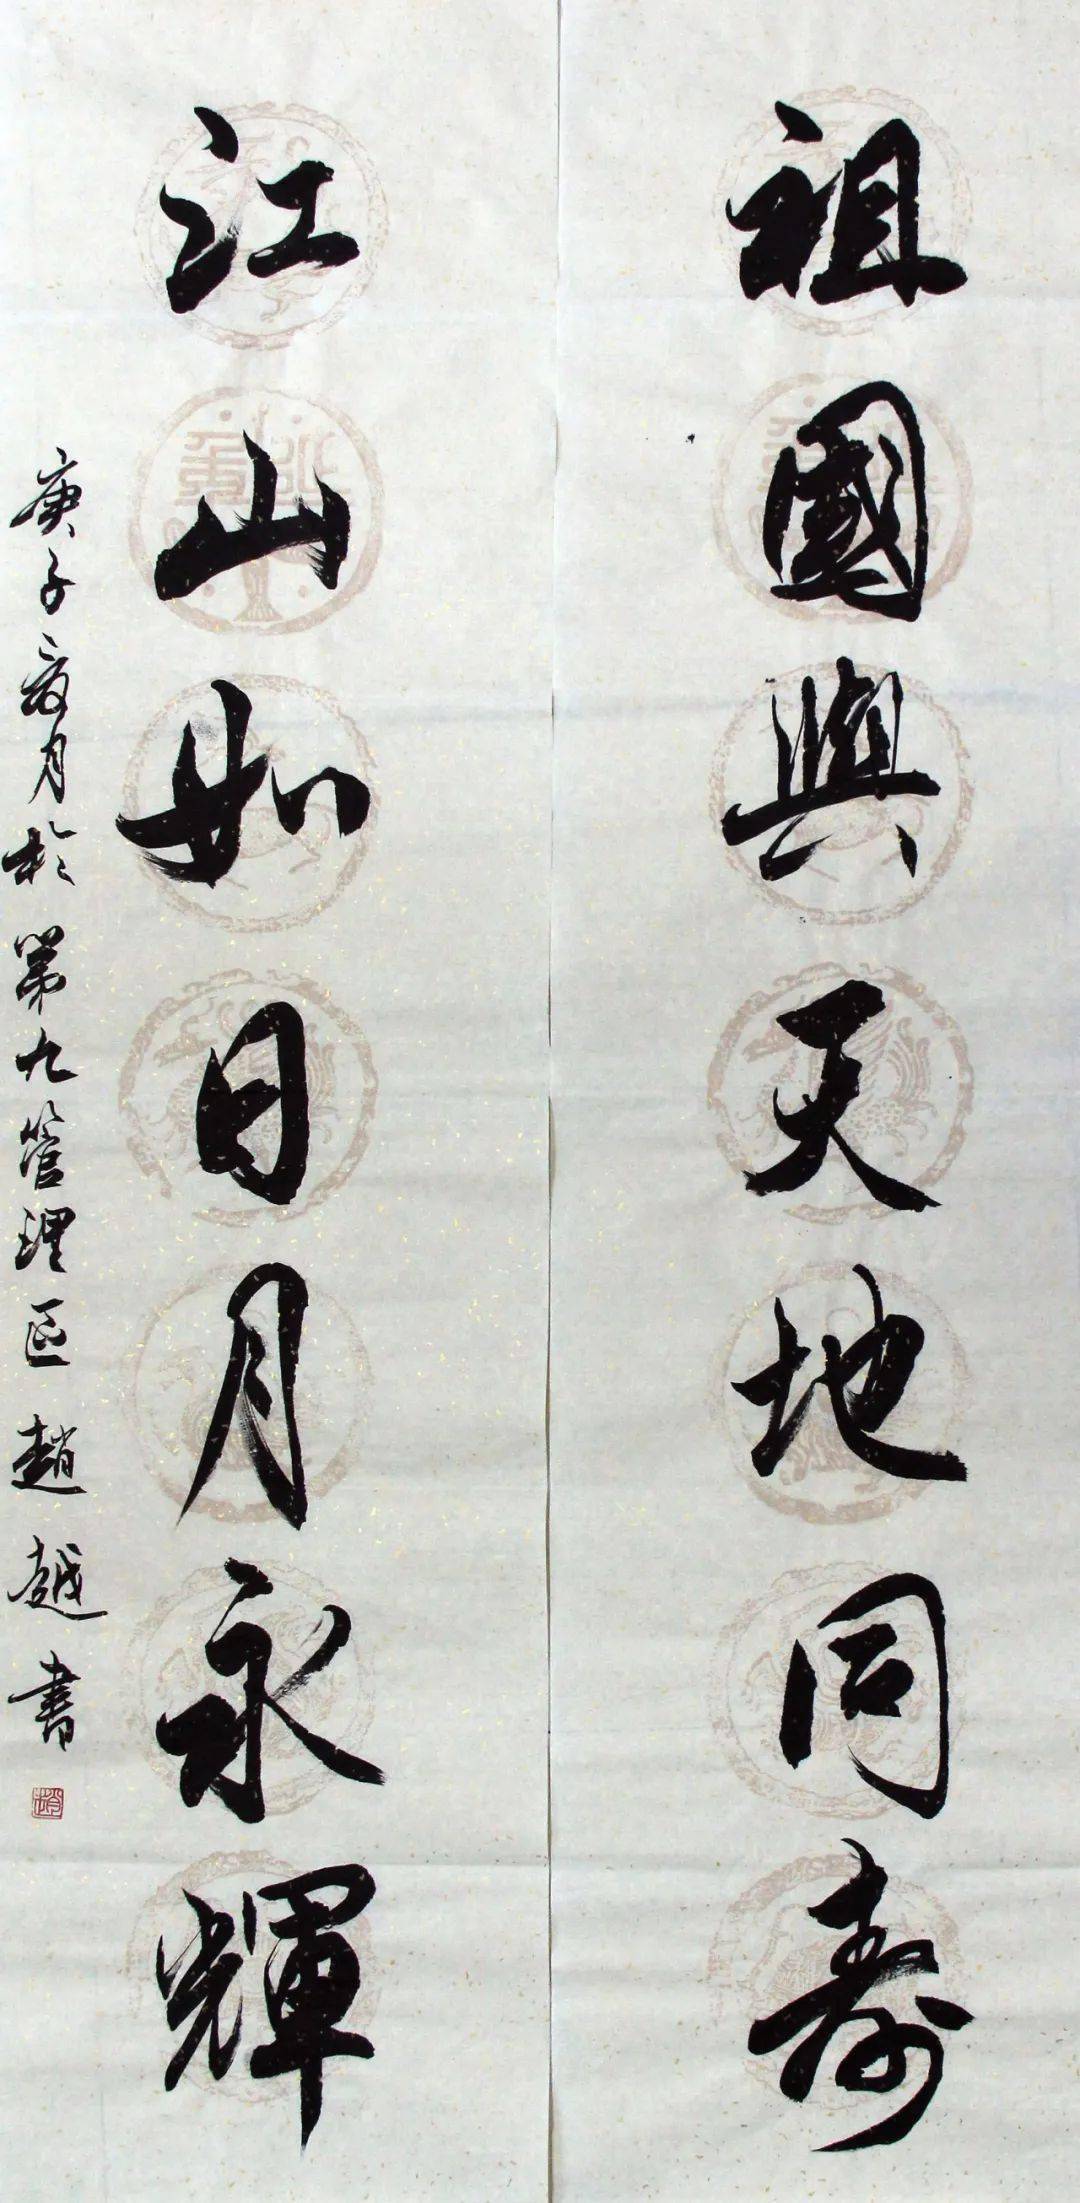 祖國與天地同壽
江山如日月永輝
庚子夏月於第九管理区趙越書
趙